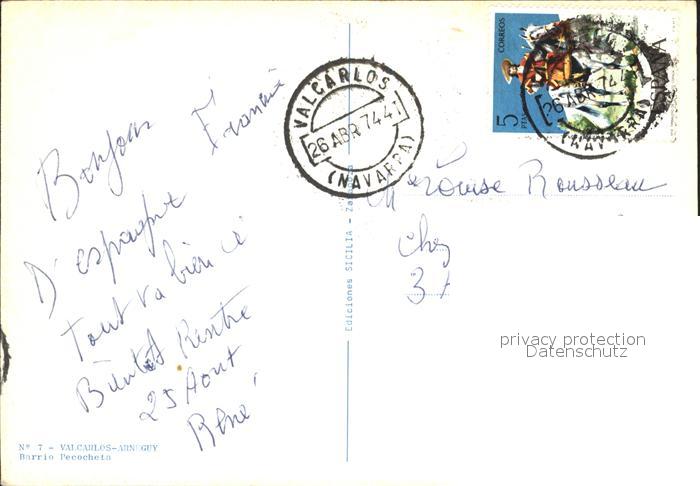 Bonjour
D'espagne
Tout va bien
Bientot Rentre
25 Aout
René
Nº 7 - VALCARLOS-ARNEGUY
Barrio Pecocheta
Ediciones SICILIA - Za
VALCARLOS
26 ABR 74
(NAVARRA)
CORREOS
5 PTAS
ESPAÑA
26 ABR 74
(NAVARRA)
Louise Rousseau
chez
privacy protection
Datenschutz